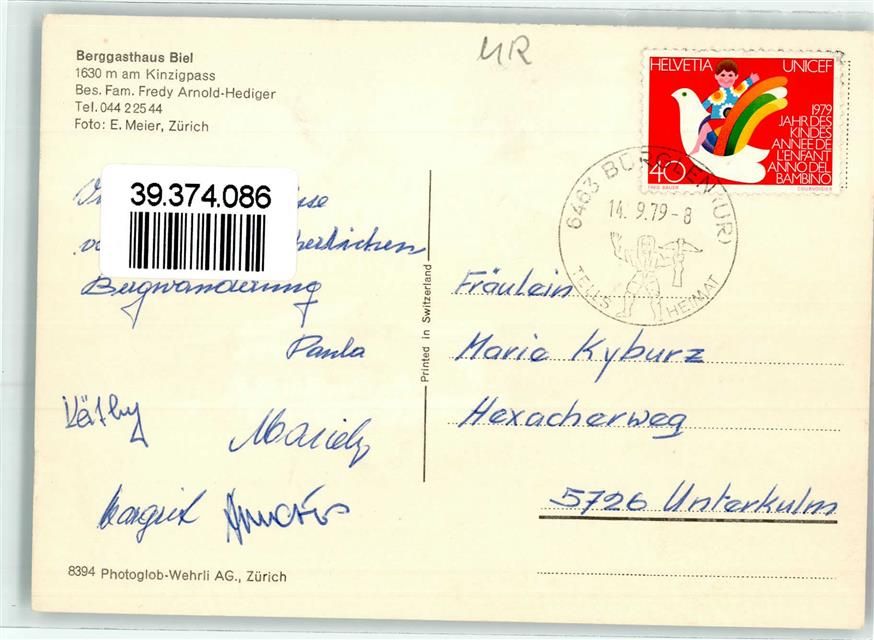 Berggasthaus Biel
1630 m am Kinzigpass
Bes. Fam. Fredy Arnold-Hediger
Tel. 044 2 25 44
Foto: E. Meier, Zürich
MR
HELVETIA UNICEF
1979
JAHR DES
KINDES
ANNÉE DE
L'ENFANT
ANNO DEL
BAMBINO
40
COURVOISIER
6463 BÜRGLEN (UR)
14. 9.79-8
TELLS HEIMAT
39.374.086
Bergwanderung
Paula
Käthy
Margrit
Printed in Switzerland
Fräulein
Marie Kyburz
Hexacherweg
5726 Unterkulm
8394 Photoglob-Wehrli AG., Zürich